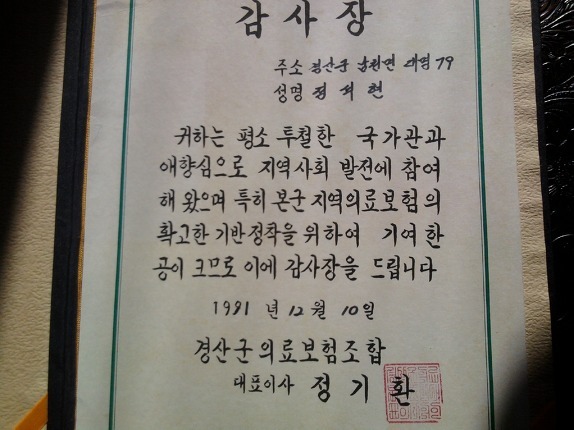 감사장
주소 경산군 남천면 대명 79
성명 정 석 현
귀하는 평소 투철한 국가관과
애향심으로 지역사회 발전에 참여
해 왔으며 특히 본군 지역의료보험의
확고한 기반정착을 위하여 기여한
공이 크므로 이에 감사장을 드립니다
1991 년 12 월 10 일
경산군의료보험조합
대표이사 정 기 환